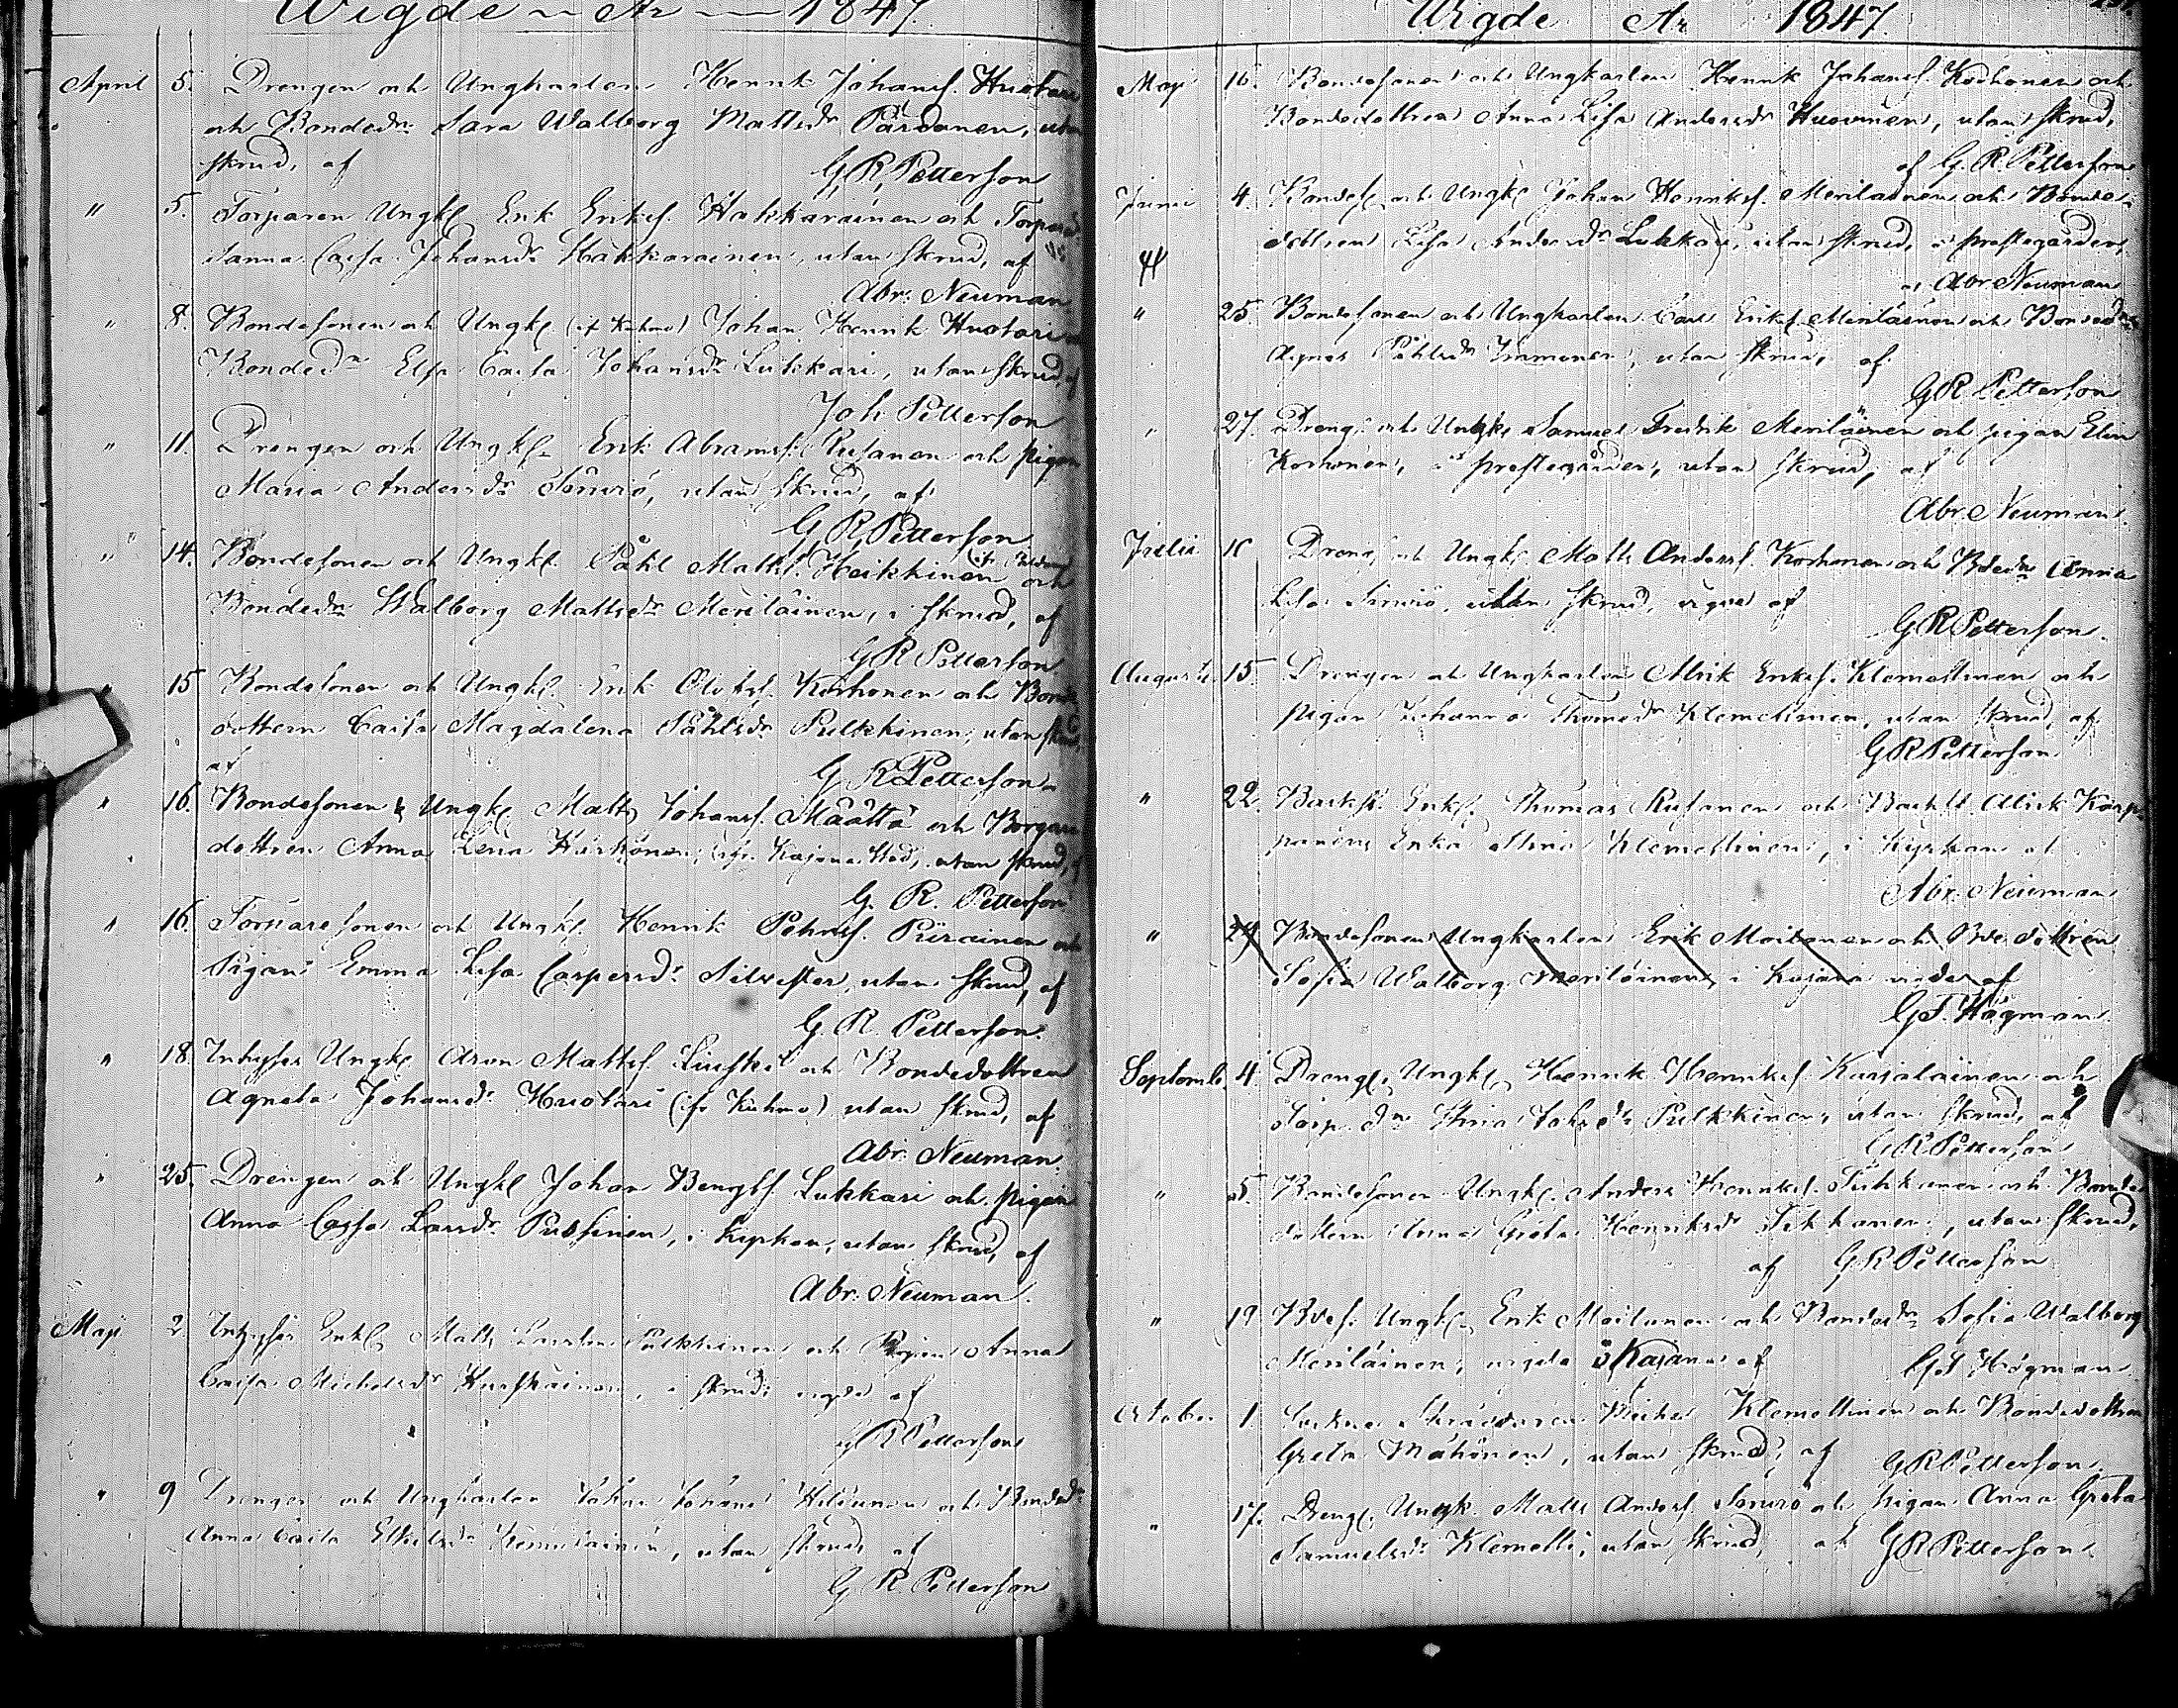 Wigde År 1847.
April 5. Drengen och Ungkarlen Henrik Johanss. Huotari
och Bondedr Sara Walborg Mattsdr Pärdänen, utan
skrud, af G. R. Petterson
" 5. Torparen Ungkl Erik Eriks. Hakkarainen och Torpare
Caisa Johansdr Hakkarainen, utan skrud, af
Abr. Neuman
" 8. Bondesonen och Ungkl (if Kuhmo) Johan Henrik Huotari
Bondedr Elsa Caisa Johansdr Lukkari, utan skrud, af
Joh Petterson
" 11. Drengen och Ungkl. Erik Abramss. Rusanen och pigan
Maria Andersdr Servió, utan skrud, af
G. R. Petterson
" 14. Bondesonen och Ungkl. Påhl Matts. Heikkinen och
Bondedr Walborg Mattsdr Meriläinen, i skrud, af
G R Petterson
" 15 Bondesonen och Ungkl. Erik Olofss. Korhonen och Bonde
dottern Caisa Magdalena Påhlsdr Pulkkinen, utan skrud,
af G R Petterson
" 16. Bondesonen & Ungkl Matts Johanss. Määttä och Borgare
dottren Anna Lena Härkönen, ifr. Kajana stad, utan skrud, af
G. R. Petterson
" 16. sonen och Ungkl. Henrik Petterss. Piirainen och
Pigan Emma Lisa Caspersdr Silvester, utan skrud, af
G. R. Petterson.
" 18. Inhyses Ungkl Aron Mattss. Liuski och Bondedottren
Agneta Johansdr Huotari (ifr Kuhmo) utan skrud, af
Abr. Neuman.
" 25. Drengen och Ungkl Johan Bengtss. Lukkari och pigan
Anna Caisa Larsdr Pussinen, i kyrkan, utan skrud, af
Abr. Neuman.
Maji 2. Inhyses Enkl Matts Pulkkinen och Pigan Anna
Caisa Michelsdr, i skrud, vigde af
G R Petterson
" 9 Drengen och Ungkarlen Johan Johans och Bondedr
Anna Caisa, utan skrud, af
G. R. Petterson
Wigde År 1847.
Maji 16. Bondesonen och Ungkarlen Henrik Johanss. Korhonen och
Bondedottren Anna Lisa Andersdr Huovinen, utan skrud,
af G. R. Petterson
Junii 4. Bondes och Ungkl Johan Henrikss. Meriläinen och Bonde
dottren Lisa Andersdr Lukkari, utan skrud, i prestegården,
af Abr Neuman
" 25. Bondesonen och Ungkarlen Carl Erikss. Meriläinen och Bondedr
Agnes Påhlsdr Immonen, utan skrud, af
G R Petterson
" 27. Dreng. och Ungkl Samuel Fredrik Meriläinen och pigan Elin
Korhonen, i prestegården, utan skrud, af
Abr. Neuman.
Julii Dreng och Ungkl. Matts Anderss. Korhonen och Bdedr Anna
Lisa Servió, utan skrud, vigde af
G R Petterson.
Augusti 15. Drengen och Ungkarlen Alrik Erikss. Klemettinen och
pigan Johanna Thomsdr Klemettinen, utan skrud, af
G R Petterson
" 22. Backst. Enkl. Thomas Rusanen och Backst Alrik Karp-
panens Enka Stina Klemettinen, i Kyrkan af
Abr. Neuman
" 29 Bondesonen Ungkarlen Erik Moilanen och Bde dottren
Sofia Walborg Meriläinen, i Kajana vigde af
G F. Högman.
Septemb. 4. Drengl. Ungkl Henrik Henrikss. Karjalainen och
Torp. dr Stina Johsdr Pulkkinen, utan skrud, af
G R Petterson
" 5. Bondesonen Ungkl. Anders Henrikss. Tikkanen och Bonde
dottern Anna Greta Henriksdr Tikkanen, utan skrud,
af G R Petterson
" 19 Bdes. Ungkl. Erik Moilanen och Bondedr Sofia Walborg
Meriläinen, vigda i Kajana af G F Högman.
October 1. Sockne Skräddaren Michel Klemettinen och Bondedottren
Greta Mähönen, utan skrud, af G R Petterson.
" 17. Drengl. Ungk. Matts Anderss. Servió och pigan Anna Greta
Samuelsdr Klemetti, utan skrud, af G R Petterson.